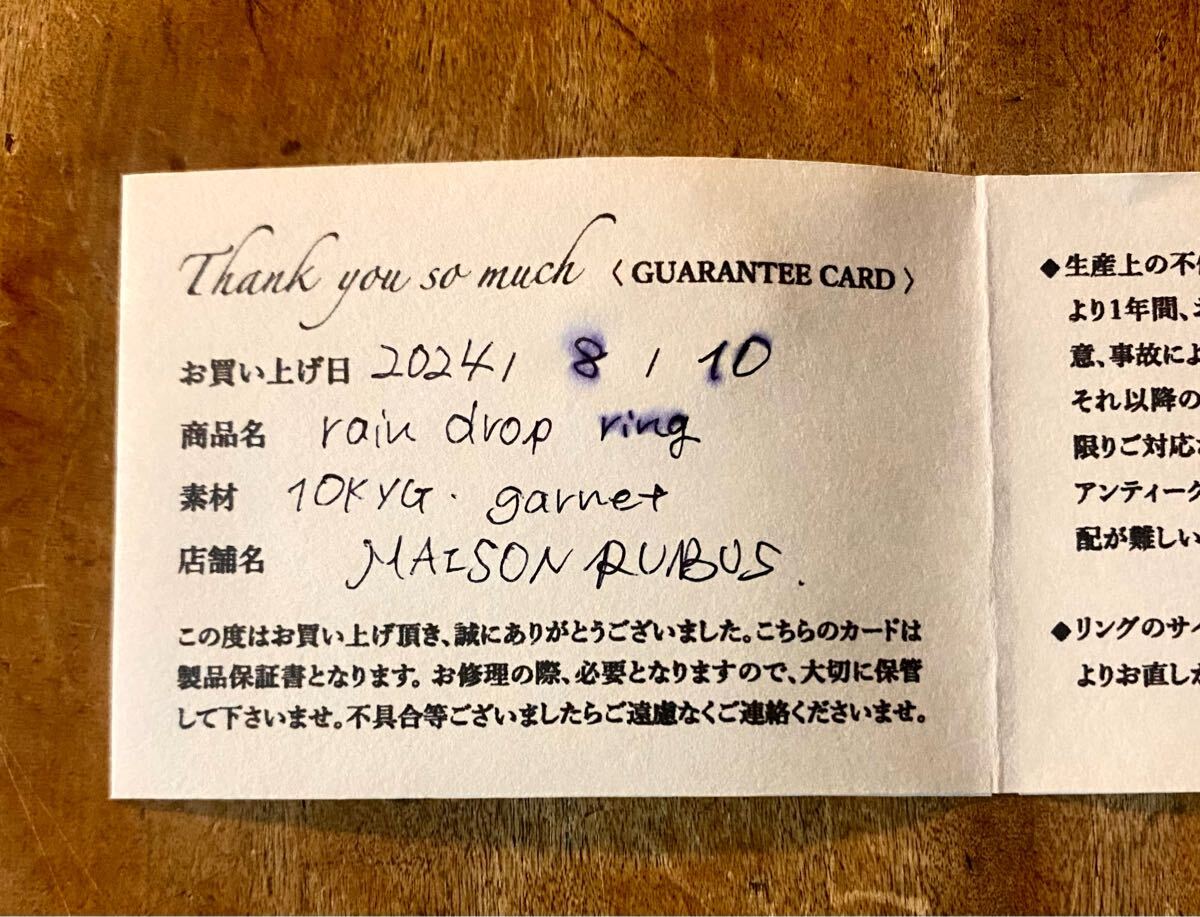 Thank you so much 〈 GUARANTEE CARD 〉
お買い上げ日 2024 / 8 / 10
商品名 rain drop ring
素材 10KYG. garnet
店舗名 MAISON RUBUS.
この度はお買い上げ頂き、誠にありがとうございました。こちらのカードは
製品保証書となります。お修理の際、必要となりますので、大切に保管
して下さいませ。不具合等ございましたらご遠慮なくご連絡くださいませ。
◆生産上の不
より1年間、
意、事故によ
それ以降の
限りご対応
アンティーク
配が難しい
◆リングのサイ
よりお直し